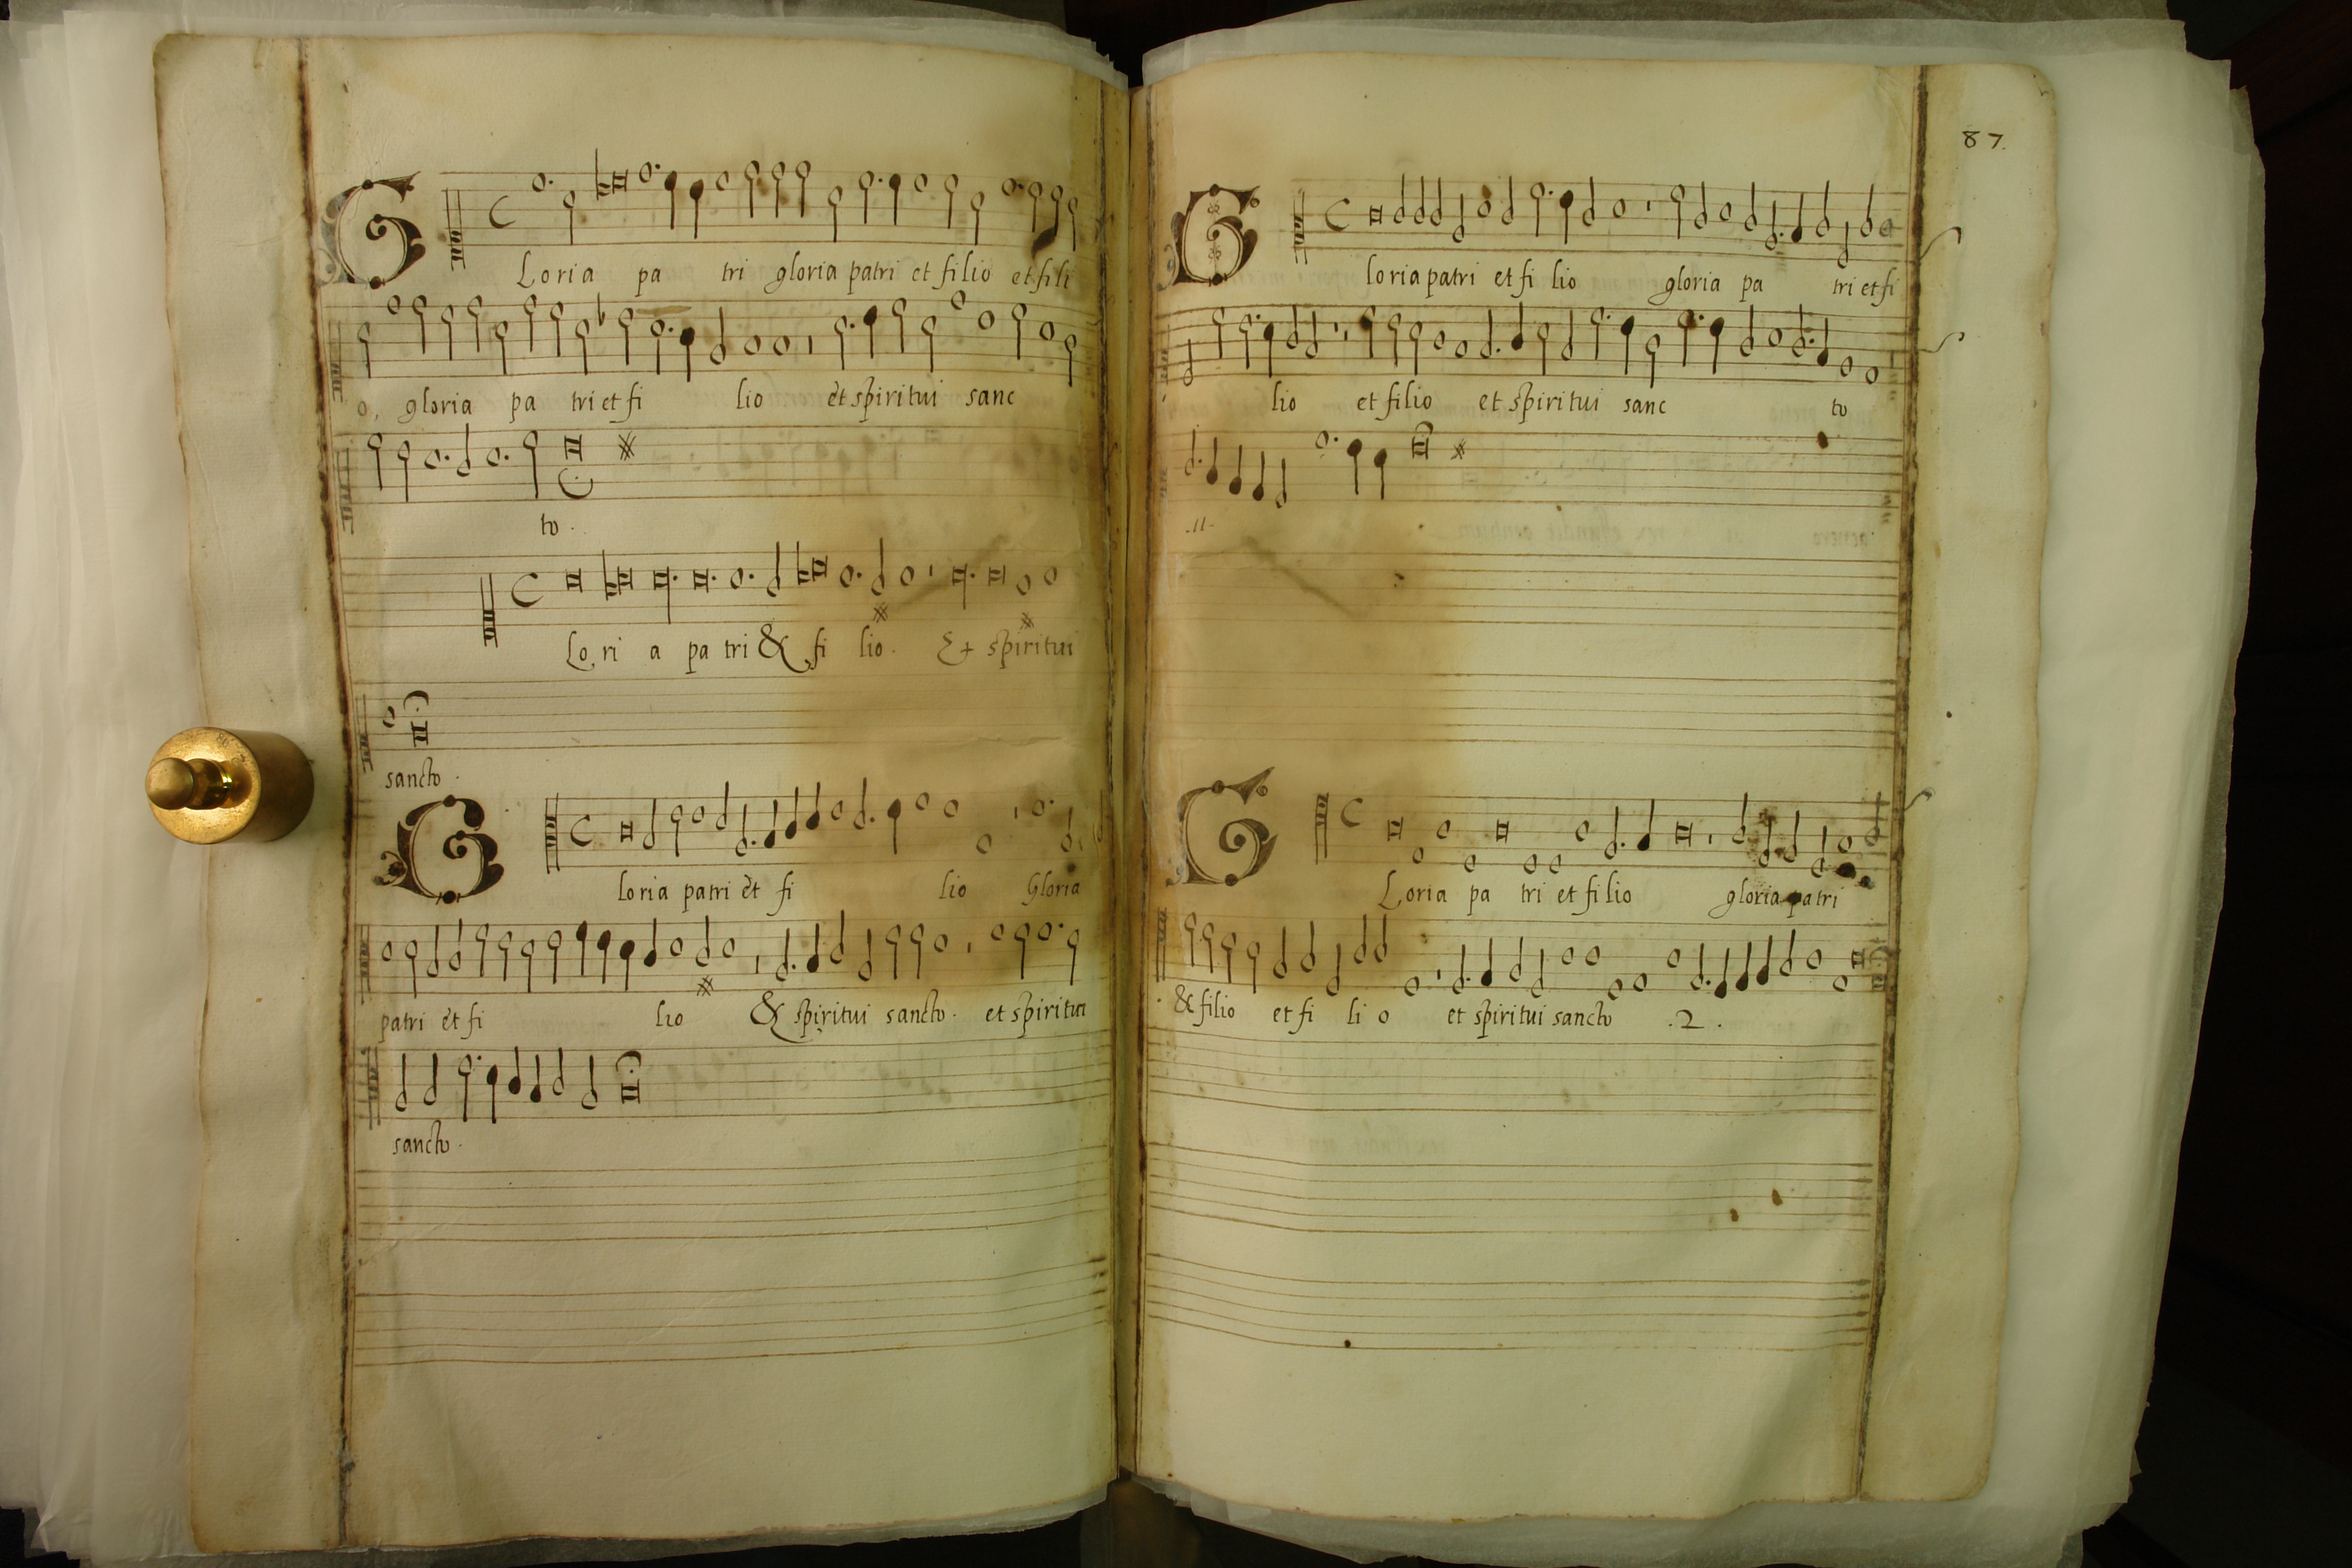 GLoria pa tri gloria patri et filio et fili
o, gloria pa tri et fi lio et spiritui sanc
to.
Lo ri a pa tri & fi lio. Et spiritui
sancto.
Gloria patri et fi lio Gloria
patri et fi lio & spiritui sancto. et spiritui
sancto.
87
Gloria patri et fi lio gloria pa tri et fi
lio et filio et spiritui sanc to
.11.
GLoria pa tri et filio gloria patri
& filio et fi li o et spiritui sancto .2.